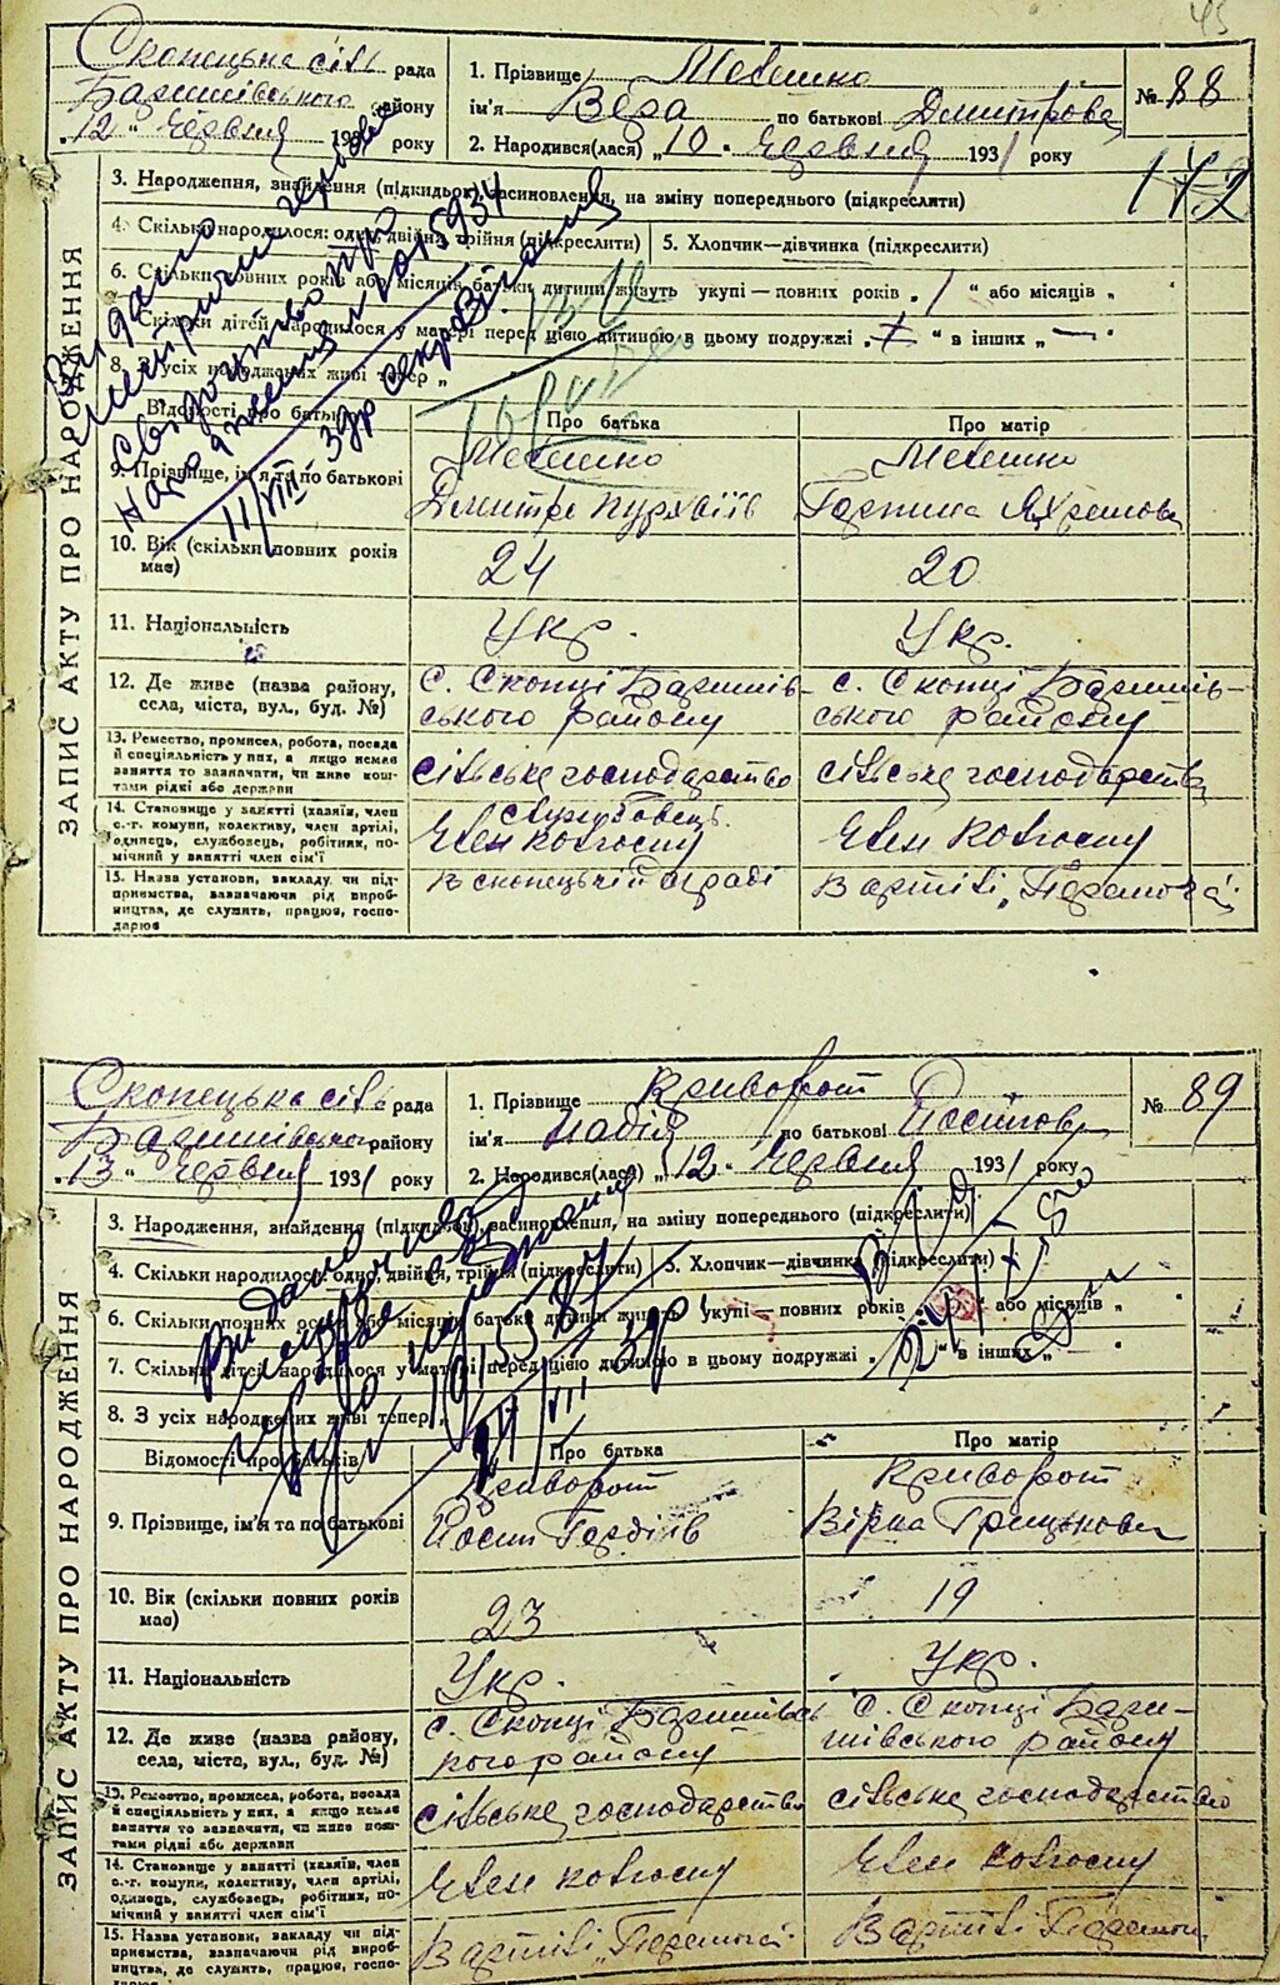 45
Скопецька сіль рада
Баришівського району
„12“ червня 1931 року
1. Прізвище Мелешко
ім'я Вера по батькові Дмитрова
2. Народився(лася) „10“ червня 1931 року
№ 88
172
ЗАПИС АКТУ ПРО НАРОДЖЕННЯ
3. Народження, знайдення (підкидьок), засиновлення, на зміну попереднього (підкреслити)
4. Скільки народилося: одно, двійня, трійня (підкреслити)
5. Хлопчик—дівчинка (підкреслити)
6. Скільки повних років або місяців батьки дитини живуть укупі — повних років „1“ або місяців „
7. Скільки дітей народилося у матері перед цією дитиною в цьому подружжі „ “ в інших „—“
8. З усіх народжених живі тепер „
Видано
метричне
свідоцтво про
народження № 1015934
11/VIII-39р
Відомості про батьків
Про батька
Про матір
9. Прізвище, ім'я та по батькові
Мелешко
Дмитро
Мелешко
Горпина
10. Вік (скільки повних років має)
24
20
11. Національність
Укр.
Укр.
12. Де живе (назва району, села, міста, вул., буд. №)
с. Скопці Баришів-
ського району
с. Скопці Баришів-
ського району
13. Ремество, промисел, робота, посада й спеціяльність у них, а якщо немає заняття то зазначати, чи живе коштами рідні або держави
сільське господарство
сільське господарство
14. Становище у занятті (хазяїн, член с.-г. комуни, колективу, член артілі, одинець, службовець, робітник, помічний у занятті член сім'ї
службовець
Член колгоспу
Член колгоспу
15. Назва установи, закладу чи підприємства, зазначаючи рід виробництва, де служить, працює, господарює
в скопецькій с/раді
В артілі „Перемога“
Скопецька сіль рада
Баришівського району
„13“ червня 1931 року
1. Прізвище Криворот
ім'я Надія по батькові Йосипов
2. Народився(лася) „12“ червня 1931 року
№ 89
ЗАПИС АКТУ ПРО НАРОДЖЕННЯ
3. Народження, знайдення (підкидьок), засиновлення, на зміну попереднього (підкреслити)
4. Скільки народилося: одно, двійня, трійня (підкреслити)
5. Хлопчик—дівчинка (підкреслити)
6. Скільки повних років або місяців батьки дитини живуть укупі — повних років „ “ або місяців „
7. Скільки дітей народилося у матері перед цією дитиною в цьому подружжі „ “ в інших „
8. З усіх народжених живі тепер „
Видано
Відомості про батьків
Про батька
Про матір
9. Прізвище, ім'я та по батькові
Криворот
Йосип Гордіїв
Криворот
Вірка Грицькова
10. Вік (скільки повних років має)
23
19
11. Національність
Укр.
Укр.
12. Де живе (назва району, села, міста, вул., буд. №)
с. Скопці Баришівсь
кого району
с. Скопці Бари-
шівського району
13. Ремество, промисел, робота, посада й спеціяльність у них, а якщо немає заняття то зазначати, чи живе коштами рідні або держави
сільське господарство
сільське господарство
14. Становище у занятті (хазяїн, член с.-г. комуни, колективу, член артілі, одинець, службовець, робітник, помічний у занятті член сім'ї
Член колгоспу
Член колгоспу
15. Назва установи, закладу чи підприємства, зазначаючи рід виробництва, де служить, працює, госпо-
В артілі „Перемога“
В артілі „Перемога“